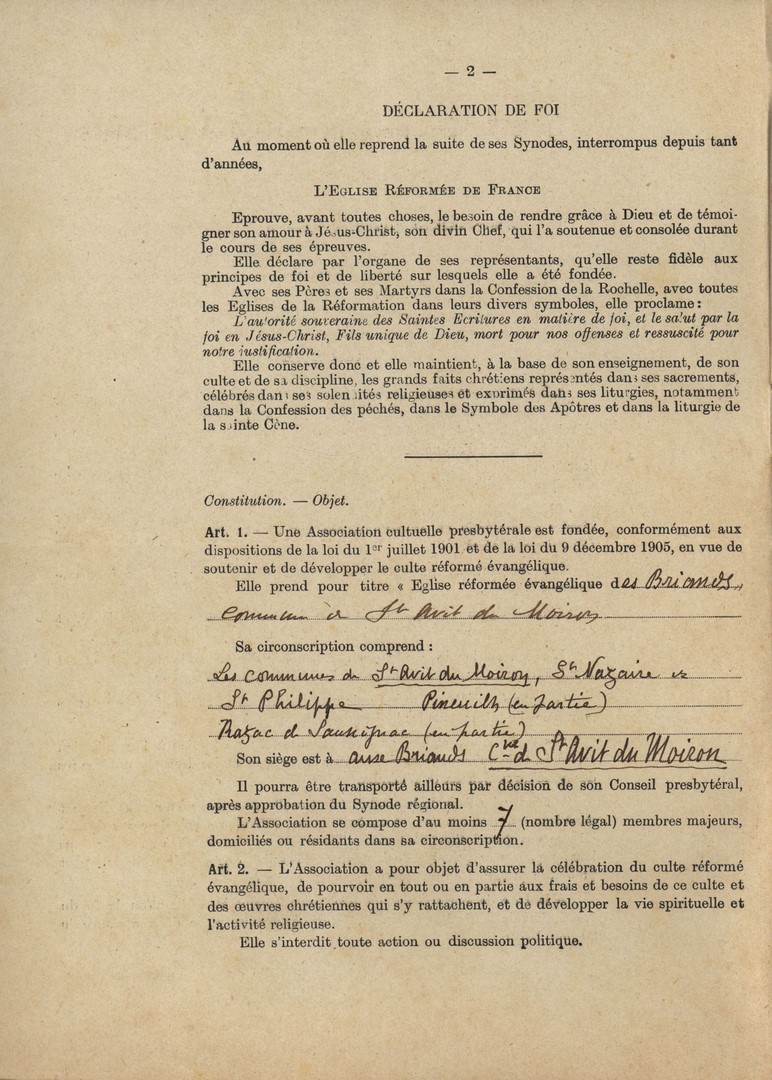 — 2 —
DÉCLARATION DE FOI
Au moment où elle reprend la suite de ses Synodes, interrompus depuis tant
d'années,
L'EGLISE RÉFORMÉE DE FRANCE
Eprouve, avant toutes choses, le besoin de rendre grâce à Dieu et de témoi-
gner son amour à Jésus-Christ, son divin Chef, qui l'a soutenue et consolée durant
le cours de ses épreuves.
Elle déclare par l'organe de ses représentants, qu'elle reste fidèle aux
principes de foi et de liberté sur lesquels elle a été fondée.
Avec ses Pères et ses Martyrs dans la Confession de la Rochelle, avec toutes
les Eglises de la Réformation dans leurs divers symboles, elle proclame :
L'autorité souveraine des Saintes Ecritures en matière de foi, et le salut par la
foi en Jésus-Christ, Fils unique de Dieu, mort pour nos offenses et ressuscité pour
notre justification.
Elle conserve donc et elle maintient, à la base de son enseignement, de son
culte et de sa discipline, les grands faits chrétiens représentés dans ses sacrements,
célébrés dans ses solennités religieuses et exprimés dans ses liturgies, notamment
dans la Confession des péchés, dans le Symbole des Apôtres et dans la liturgie de
la sainte Cène.
Constitution. — Objet.
Art. 1. — Une Association cultuelle presbytérale est fondée, conformément aux
dispositions de la loi du 1er juillet 1901 et de la loi du 9 décembre 1905, en vue de
soutenir et de développer le culte réformé évangélique.
Elle prend pour titre « Eglise réformée évangélique des Briands,
commune de St Avit du Moiron
Sa circonscription comprend :
Les communes de St Avit du Moiron, St Nazaire et
St Philippe Pineuilh (en partie)
Razac de Saussignac (en partie)
Son siège est à aux Briands Cne de St Avit du Moiron
Il pourra être transporté ailleurs par décision de son Conseil presbytéral,
après approbation du Synode régional.
L'Association se compose d'au moins 7 (nombre légal) membres majeurs,
domiciliés ou résidants dans sa circonscription.
Art. 2. — L'Association a pour objet d'assurer la célébration du culte réformé
évangélique, de pourvoir en tout ou en partie aux frais et besoins de ce culte et
des œuvres chrétiennes qui s'y rattachent, et de développer la vie spirituelle et
l'activité religieuse.
Elle s'interdit toute action ou discussion politique.